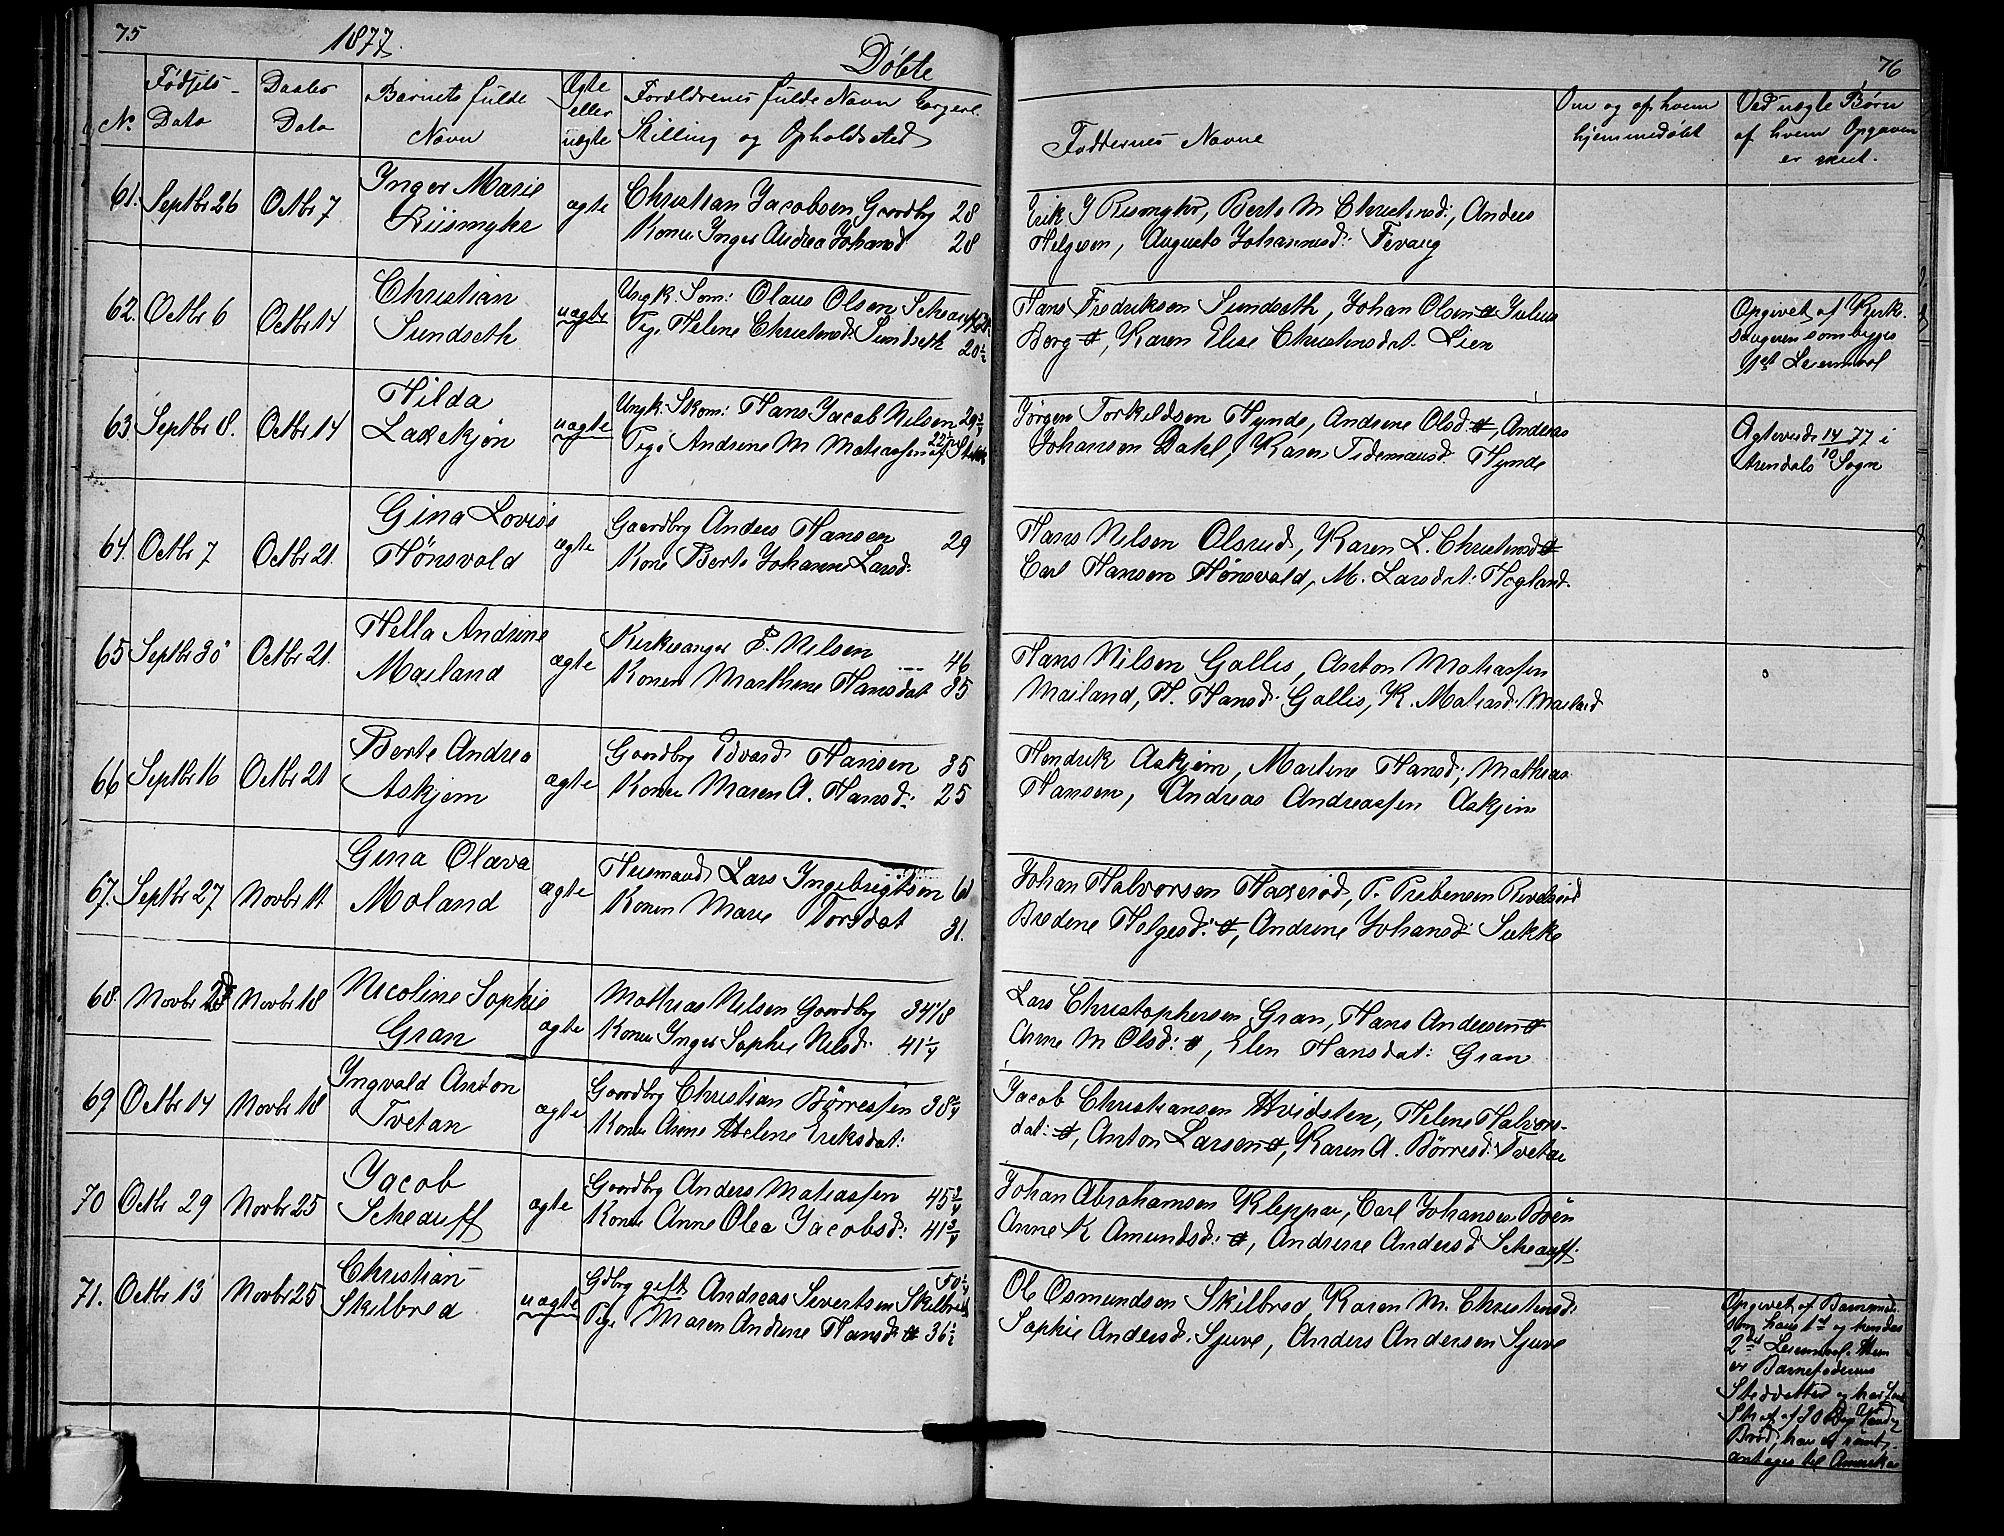 75
1877.
Døbte
76
No.
Fødsels-
Data
Daabs
Data
Barnets fulde
Navn
Ægte
eller
uægte
Forældrenes fulde Navn
Stilling og Opholdssted
Faddernes Navne
Om og af hvem
hjemmedøbt
Ved uægte Børn
af hvem Opgaven
er skeet.
61. Septbr 26 Octbr 7 Inger Marie ægte Christian Jacobsen Gaardbr 28
Riismyhr Konen Inger Andrea Johansd. 28
Erik J Rismyhr, Berte M Christensd:, Anders
Helgesen, Augusta Johannesd: Fevang
62. Octbr 6 Octbr 14 Christian uægte Ungk. Søm: Olaus Olsen
Sundseth Pige Helene Christensd. Sundseth 20½
Hans Fredriksen Sundseth, Johan Olsen Julius
Borg, Karen Elise Christensdat. Lien
Opgivet af Kirke-
sangeren som begges
1st Leiermaal
63. Septbr 8. Octbr 14 Hilda uægte Ungk. Skom: Hans Jacob Nilsen
Laxekjøn Pige Andrine M Matiassen
Jørgen Torkildsen Hynde, Andrine Olsd, Anders
Johansen Dahl, Karen Tidemansd. Hynde
Ægteviede 14/10 77 i
Arendals Sogn
64. Octbr 7 Octbr 21. Gina Lovise ægte Gaardbr Anders Hansen 29
Hønsvald Kone Berte Johanne Larsd:
Hans Nilsen Olsrud, Karen L. Christensd
Carl Hansen Hønsvald, M. Larsdat: Hogland
65 Septbr 30 Octbr 21. Hella Andrine ægte Kirkesanger P. Nilsen 46
Mailand Konen Marthine Hansdat 35
Hans Nilsen Gallis, Anton Matiassen
Mailand, H. Hansd: Gallis, K. Matiasd: Mailand
66 Septbr 16 Octbr 21 Berte Andrea ægte Gaardbr Edvard Hansen 35
Askjem Konen Maren A. Hansd: 25
Hendrik Askjem, Martine Hansd; Mathias
Hansen, Andreas Andreassen Askjem
67. Septbr 27 Novbr 11. Gina Olava ægte Huusmand Lars Ingebrigtsen 61
Moland Konen Marie Torsdat 31.
Johan Halvorsen Haxerød, P. Prebensen
Bredene Helgesd:, Andrine Johansd: Sukke
68. Novbr Novbr 18 Nicoline Sophie ægte Mathias Nilsen Gaardbr 34 1/8
Gran Konen Inger Sophie Nilsd: 41¼
Lars Christophersen Gran, Hans Andersen
Anne M Olsd:, Elen Hansdat: Gran
69 Octbr 14 Novbr 18 Ingvald Anton ægte Gaardbr Christian Børresen 38¾
Tvetan Konen Anne Helene Eriksdat:
Jacob Christiansen Hvidsten, Helene Halvors-
dat:, Anton Larsen, Karen A. Børresd: Tvetan
70 Octbr 29 Novbr 25 Jacob ægte Gaardbr Anders Matiassen 45¾
Scheauff Konen Anne Olea Jacobsd: 41¾
Johan Abrahamsen Kleppan, Carl Johansen Bøen
Anne K Amundsd:, Andrine Andersd Scheauff.
71. Octbr 13 Novbr 25 Christian uægte Gdbr gift Andreas Sivertsen Skilbred
Skilbred Pige Maren Andrine Hansd. 36½
Ole Osmundsen Skilbred Karen M. Christensd:
Sophie Andersd: Sjuve, Anders Andersen Sjuve
Opgivet af Barnemo.
som hans 1st og hendes
2det Leiermaal. Hun
er Barnefaderens
Steddatter og har
Straf af 20 Dage Vand &
Brød, han er
til Amerika